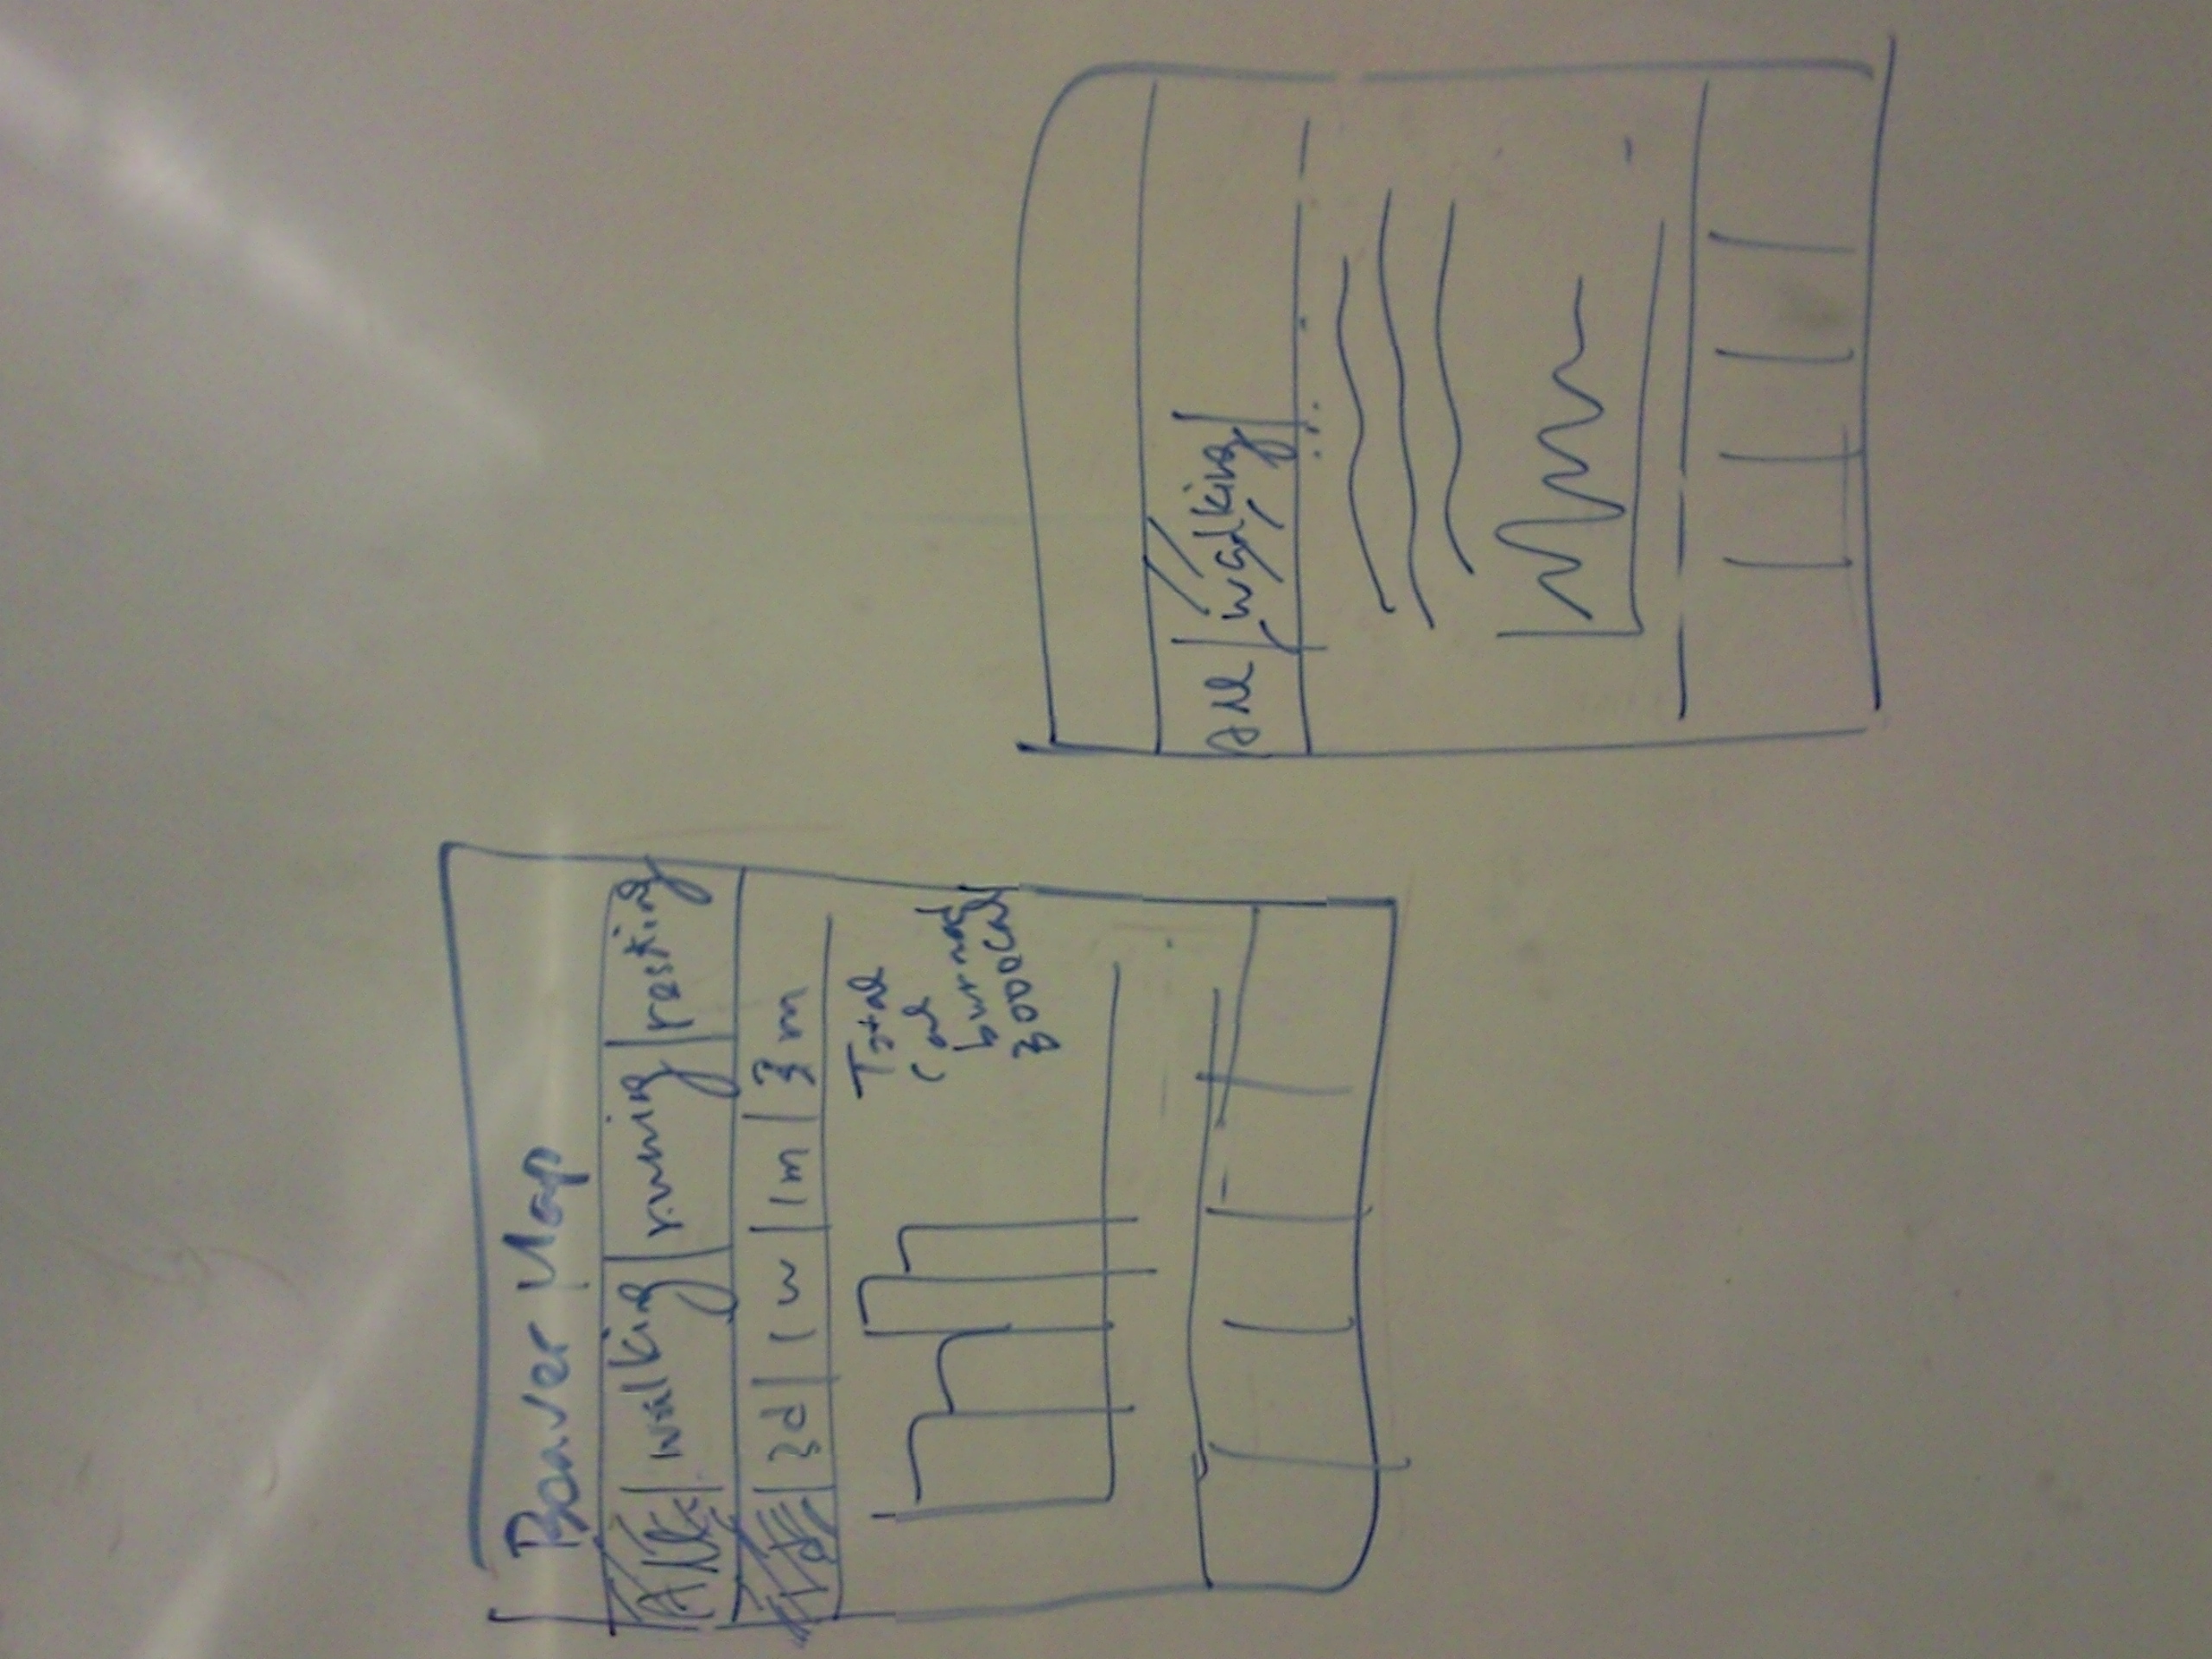 Power Map
All | walking | running | resting
1d | 3d | 1w | 1m | 3m
Total
Cal
burned
3000Cal
All | walking